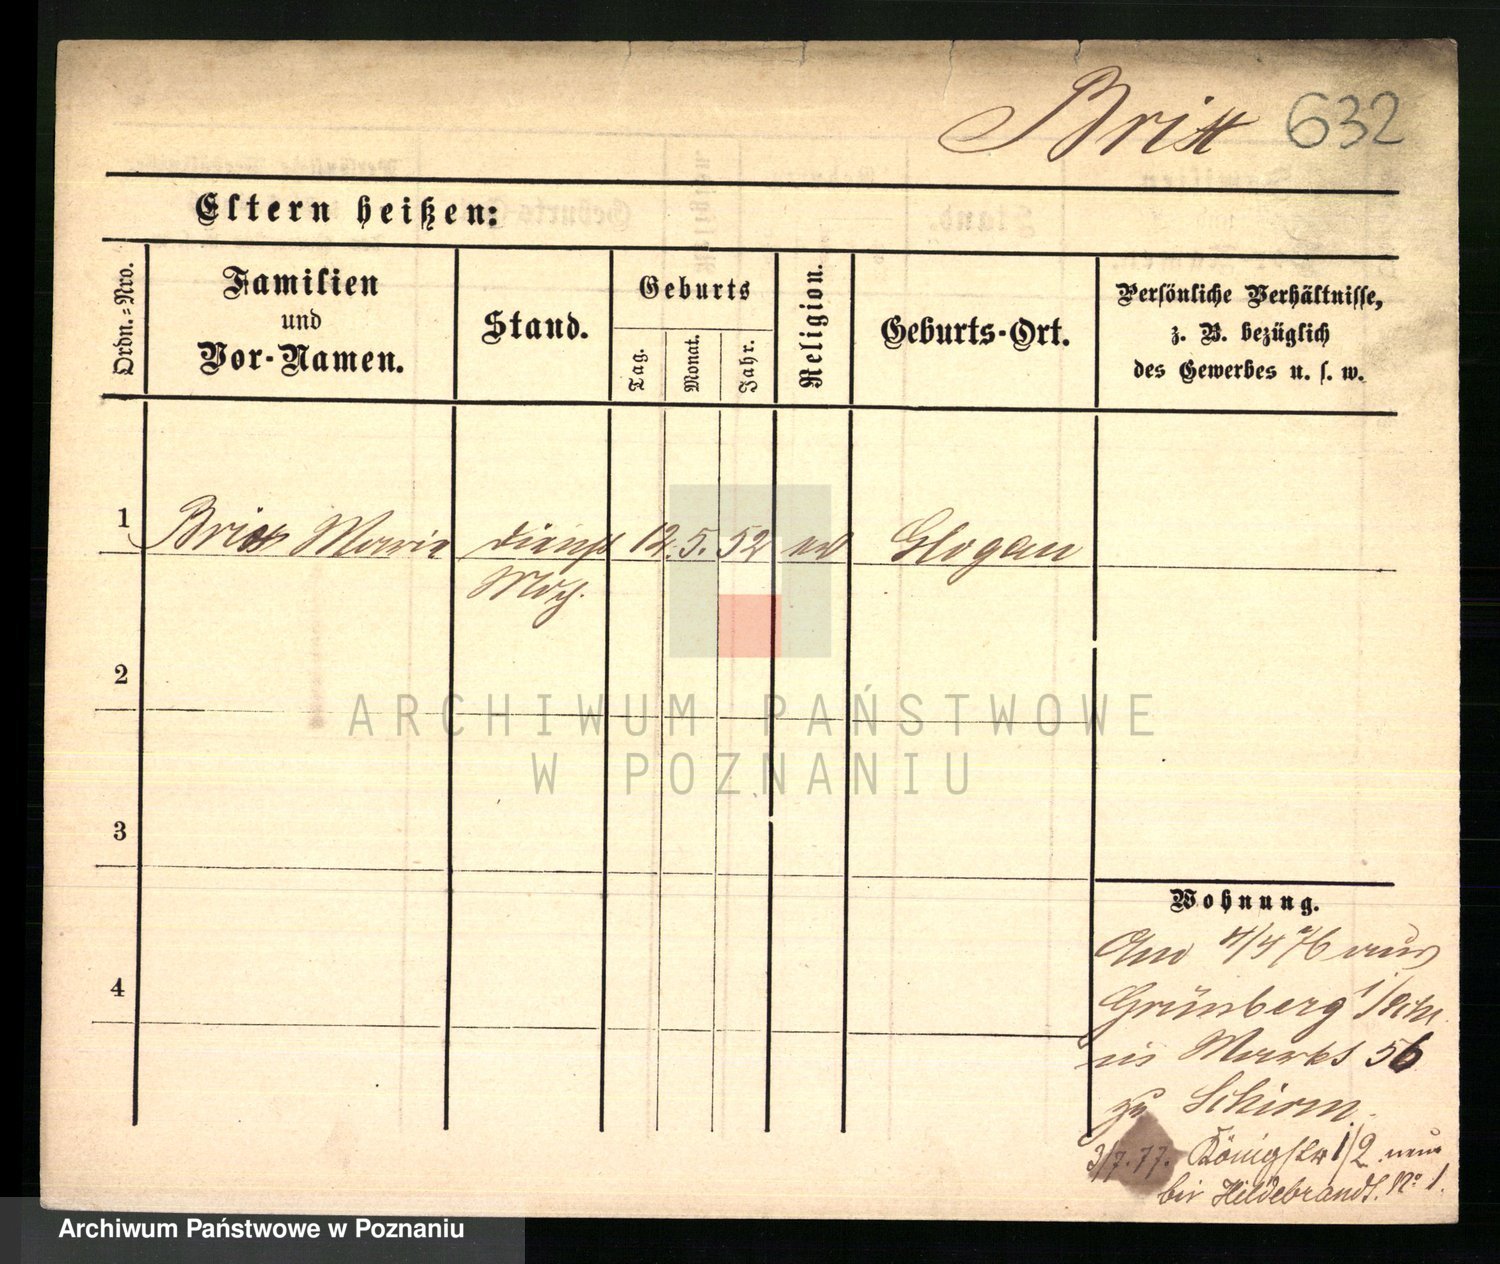 Britt 632
Eltern heißen:
Ordn.-Nro.
Familien
und
Vor-Namen.
Stand.
Geburts
Tag.
Monat.
Jahr.
Religion.
Geburts-Ort.
Persönliche Verhältnisse,
z. B. bezüglich
des Gewerbes u. s. w.
1 Marie Dienst 12. 5. 52 ev Glogau
Mdch.
2
3
4
ARCHIWUM PAŃSTWOWE
W POZNANIU
Wohnung.
Am 4/4 76 aus
Grünberg
Markt 56
zu Schirm.
3/7. 77. Königstr 1/2 neue
bei Hildebrandt. No 1.
Archiwum Państwowe w Poznaniu